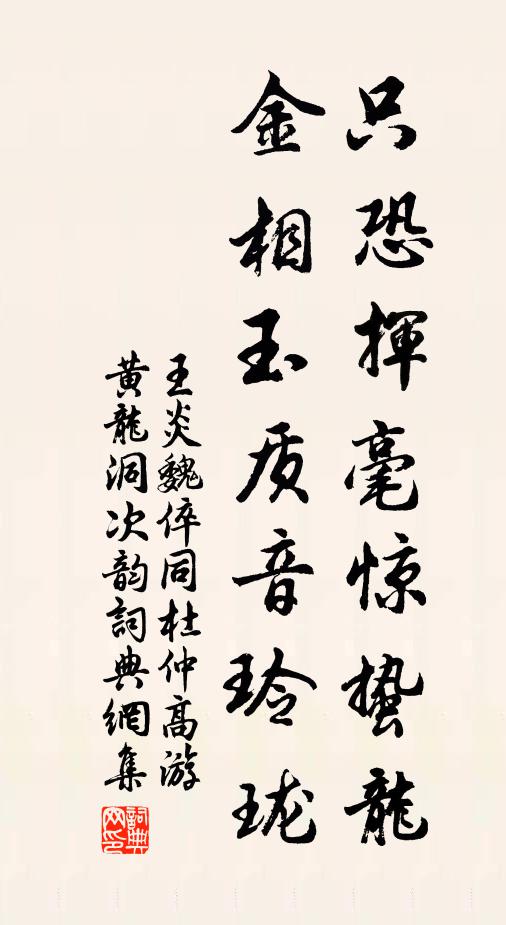 只恐揮毫惊蛰龍
金相玉质音玲珑
王炎魏倅同杜仲高游
黄龍洞次韵詞典網集
詞典網印